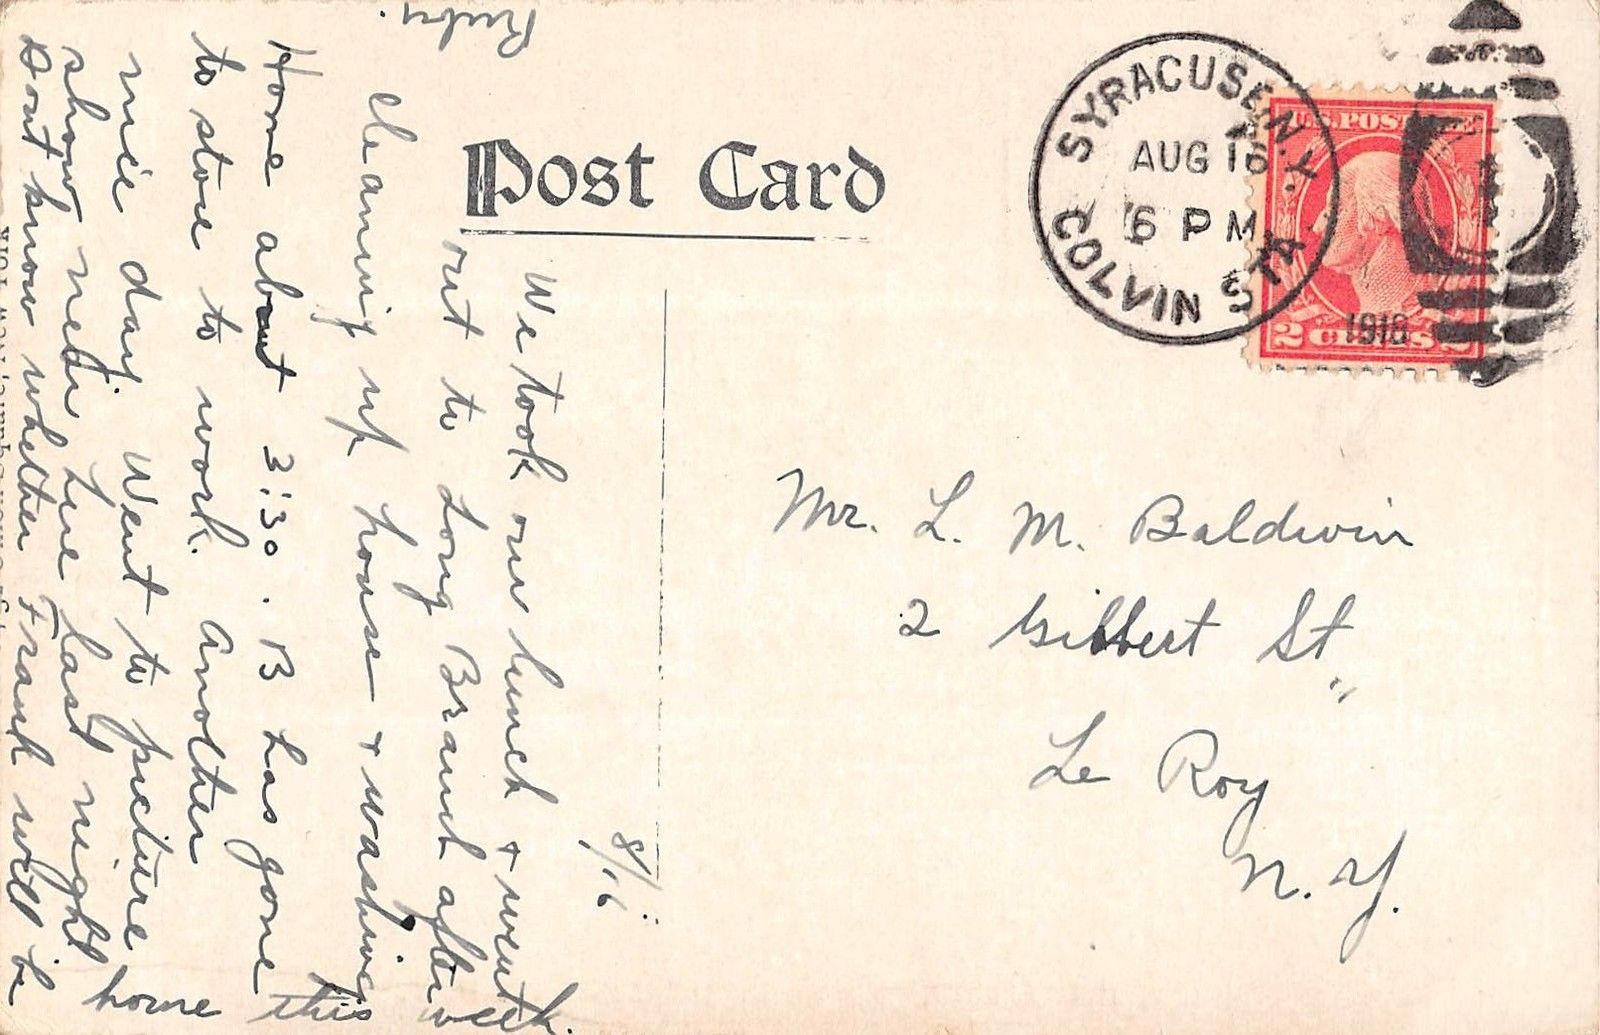 Post Card
SYRACUSE, N.Y.
AUG 16
6 PM
1918
COLVIN STA.
U.S. POSTAGE
2 CENTS 2
Mr. L. M. Baldwin
2 Gilbert St.,
Le Roy
N. Y.
8/16
We took our lunch + went
out to Long Branch after
cleaning up house + washing.
Home about 3:30. B has gone
to store to work. Another
nice day. Went to picture
show near here last night
Dont know whether Frank will be
home this week.
Ruby.